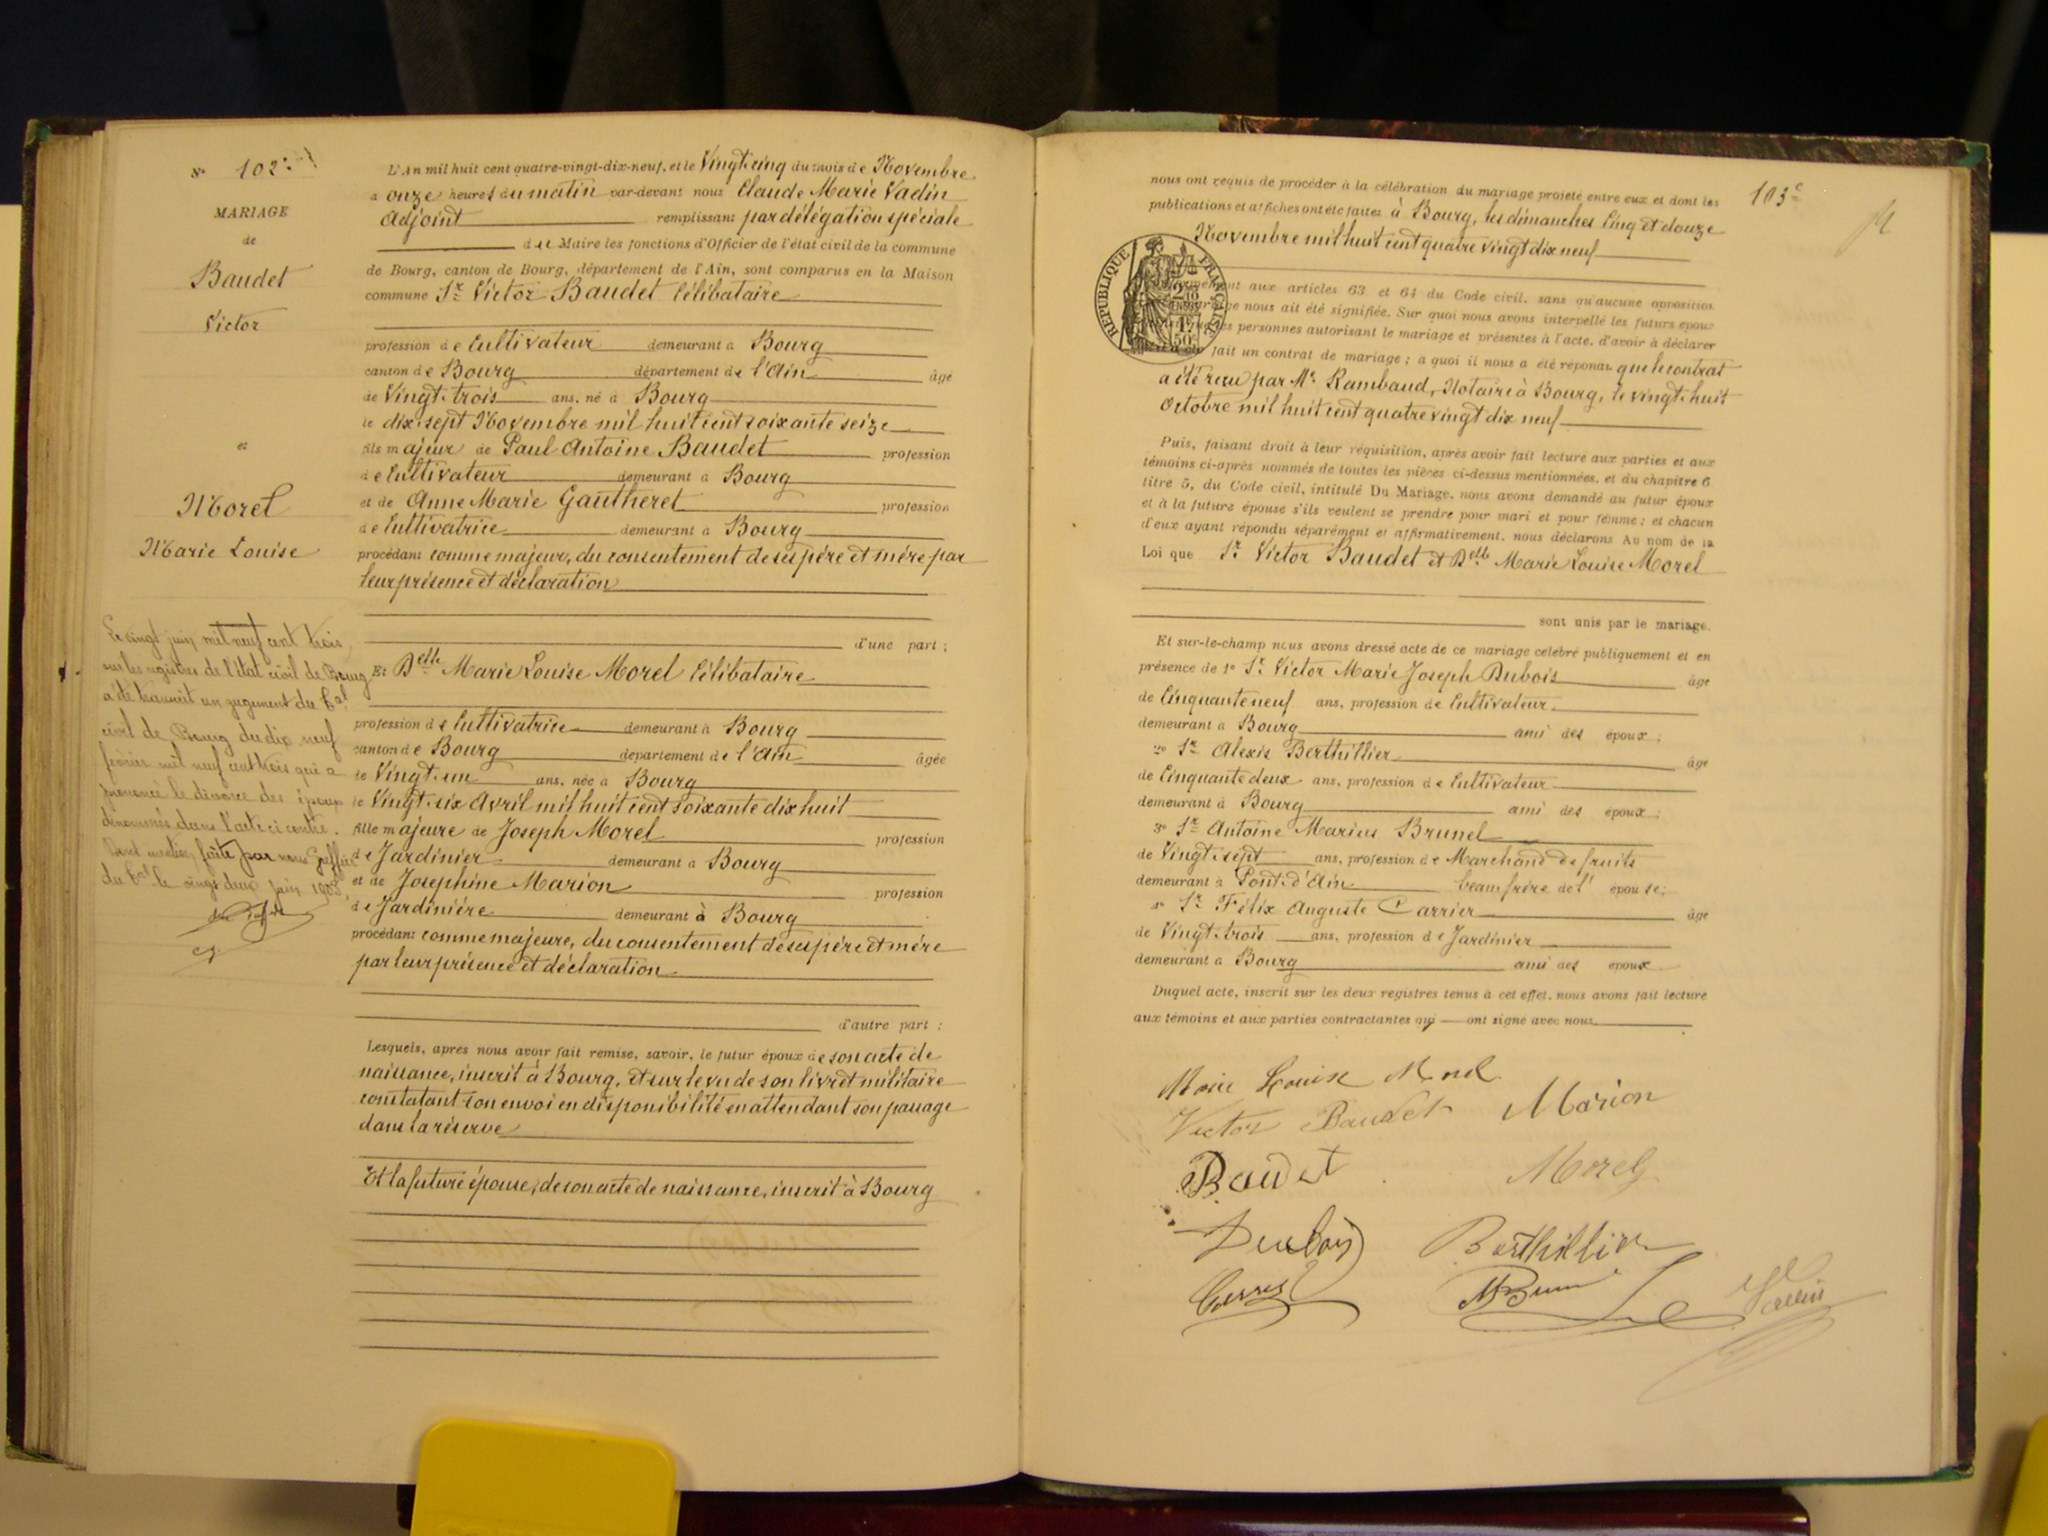 N° 102.
MARIAGE
de
Baudet
Victor
et
Morel
Marie Louise
Le vingt juin mil neuf cent trois,
sur les registres de l'état civil de Bourg
a été transcrit un jugement du Cal
civil de Bourg du dix neuf
février mil neuf cent trois qui a
prononcé le divorce des époux
dénommés dans l'acte ci contre.
Dont mention faite par nous Greffier
du Cal le vingt deux juin 1903
L'An mil huit cent quatre-vingt-dix-neuf, et le Vingt cinq du mois de Novembre
a onze heures du matin par-devant nous Claude Marie Vadin
Adjoint remplissant par délégation spéciale
du Maire les fonctions d'Officier de l'état civil de la commune
de Bourg, canton de Bourg, département de l'Ain, sont comparus en la Maison
commune Sr Victor Baudet Célibataire
profession de Cultivateur demeurant à Bourg
canton de Bourg département de l'Ain âgé
de Vingt-trois ans, né à Bourg
le dix-sept Novembre mil huit cent soixante seize
fils majeur de Paul Antoine Baudet profession
de Cultivateur demeurant à Bourg
et de Anne Marie Gautheret profession
de Cultivatrice demeurant à Bourg
procédant comme majeur, du consentement de ses père et mère par
leur présence et déclaration
d'une part ;
Et Delle Marie Louise Morel Célibataire
profession de Cultivatrice demeurant à Bourg
canton de Bourg département de l'Ain âgée
de Vingt-un ans, née à Bourg
le Vingt-six Avril mil huit cent soixante dix huit
fille majeure de Joseph Morel profession
de Jardinier demeurant à Bourg
et de Josephine Marion profession
de Jardinière demeurant à Bourg
procédant comme majeure, du consentement de ses père et mère
par leur présence et déclaration
d'autre part :
Lesquels, après nous avoir fait remise, savoir, le futur époux de son acte de
naissance, inscrit à Bourg, et sur le vu de son livret militaire
constatant son envoi en disponibilité en attendant son passage
dans la réserve
Et la future épouse, de son acte de naissance, inscrit à Bourg
103e
nous ont requis de procéder à la célébration du mariage projeté entre eux et dont les
publications et affiches ont été faites à Bourg, les dimanches Cinq et douze
Novembre mil huit cent quatre vingt dix neuf
RÉPUBLIQUE FRANÇAISE
aux articles 63 et 64 du Code civil, sans qu'aucune opposition
nous ait été signifiée. Sur quoi nous avons interpellé les futurs époux
les personnes autorisant le mariage et présentes à l'acte, d'avoir à déclarer
fait un contrat de mariage ; a quoi il nous a été répondu que le contrat
a été reçu par Me Rambaud, Notaire à Bourg, le vingt-huit
Octobre mil huit cent quatre vingt dix neuf
Puis, faisant droit à leur réquisition, après avoir fait lecture aux parties et aux
témoins ci-après nommés de toutes les pièces ci-dessus mentionnées, et du chapitre 6
titre 5, du Code civil, intitulé Du Mariage, nous avons demandé au futur époux
et à la future épouse s'ils veulent se prendre pour mari et pour femme ; et chacun
d'eux ayant répondu séparément et affirmativement, nous déclarons Au nom de la
Loi que Sr Victor Baudet et Delle Marie Louise Morel
sont unis par le mariage.
Et sur-le-champ nous avons dressé acte de ce mariage célébré publiquement et en
présence de 1° Sr Victor Marie Joseph Dubois âgé
de Cinquante neuf ans, profession de Cultivateur
demeurant à Bourg ami des époux ;
2° Sr Alexis Berthillier âgé
de Cinquante deux ans, profession de Cultivateur
demeurant à Bourg ami des époux ;
3° Sr Antoine Marius Brunel
de Vingt-sept ans, profession de Marchand de fruits
demeurant à Pont-d'Ain beau frère de l' épouse ;
4° Sr Félix Auguste Carrier âgé
de Vingt-trois ans, profession de Jardinier
demeurant à Bourg ami des époux
Duquel acte, inscrit sur les deux registres tenus à cet effet, nous avons fait lecture
aux témoins et aux parties contractantes qui ont signé avec nous
Marie Louise Morel
Victor Baudet Marion
Baudet Morel
Dubois Berthillier
Vadin